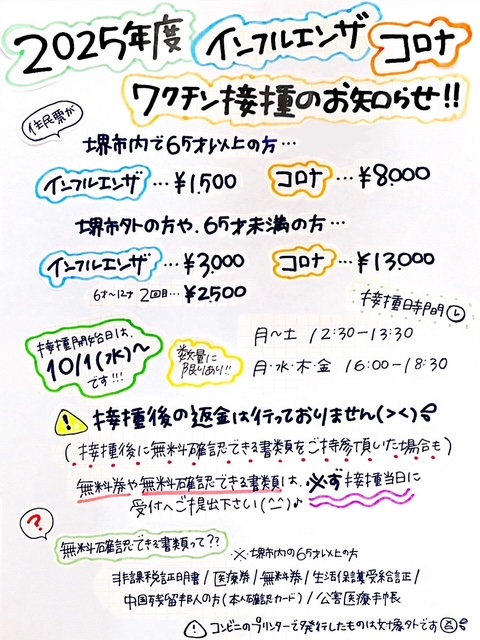 2025年度 インフルエンザ コロナ
ワクチン接種のお知らせ!!
住民票が
堺市内で65才以上の方…
インフルエンザ…¥1,500 コロナ…¥8,000
堺市外の方や、65才未満の方…
インフルエンザ…¥3,000 コロナ…¥13,000
6才~12才 2回目…¥2500
接種時間
接種開始日は、
10/1(水)~
です!!!
数量に
限りあり!!
月~土 12:30-13:30
月・水・木・金 16:00-18:30
接種後の返金は行っておりません(><)
(接種後に無料確認できる書類をご持参頂いた場合も)
無料券や無料確認できる書類は、必ず接種当日に
受付へご提出下さい(^^)♪
?
無料確認できる書類って??
※堺市内の65才以上の方
非課税証明書/医療券/無料券/生活保護受給証/
中国残留邦人の方(本人確認カード)/公害医療手帳
コンビニのプリンターで発行したものは対象外です